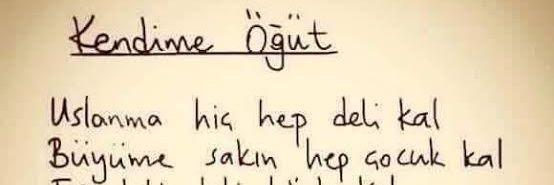 Kendime Öğüt
Uslanma hiç hep deli kal
Büyüme sakın hep çocuk kal